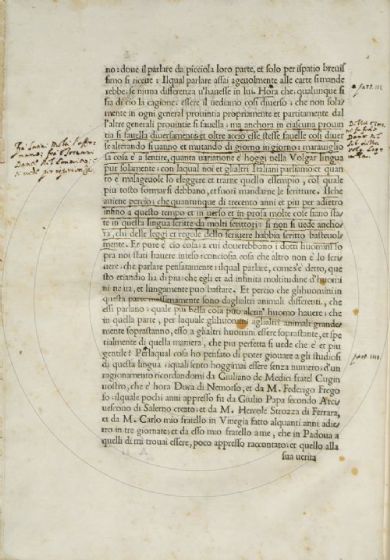 no: doue il parlare da picciola loro parte, et solo per ispatio breuissi
simo si riceue: Ilqual parlare assai ageuolmente alle carte si mande
rebbe; se niuna differenza v'hauesse in lui. Hora che; qualunque si
sia di cio la cagione; essere il uediamo cosi diuerso; che non sola=
mente in ogni general prouincia propriamente et partitamente dal
l'altre generali prouincie si fauella; ma anchora in ciascuna prouin
tia si fauella diuersamente; et oltre accio esse stesse fauelle cosi diuer
se alterando si uanno et mutando di giorno in giorno; marauiglio
sa cosa è a sentire, quanta uariatione è hoggi nella Volgar lingua
pur solamente; con laqual noi et gli altri Italiani parliamo; et quan
to è malageuole lo eleggere et trarne quello essempio, col quale
piu tosto formar si debbano, et fuori mandarne le scritture. Ilche
auiene percio; che quantunque di trecento anni et piu per adietro
infino a questo tempo et in uerso et in prosa molte cose siano sta=
te in questa lingua scritte da molti scrittori; si non si uede ancho
ra, chi delle leggi et regole dello scriuere habbia scritto basteuol=
mente. Et pure è cio cosa; a cui dourebbono i dotti huomini so
pra noi stati hauere inteso: conciosia cosa che altro non è lo scri
uere; che parlare pensatamente: ilqual parlare, come s'è detto, que
sto etiandio ha di piu; che egli et ad infinita moltitudine d'huomi
ni ne ua, et lungamente puo bastare. Et percio che gli huomini in
questa parte massimamente sono dagli altri animali differenti, che
essi parlano: quale piu bella cosa puo alcun' huomo hauere; che
in quella parte, per laquale gli huomini agli altri animali grande=
mente soprastanno, esso a gli altri huomini essere soprastante, et spe
tialmente di quella maniera, che piu perfetta si uede che è et piu
gentile? Per laqual cosa ho pensato di poter giouare a gli studiosi
di questa lingua; iquali sento hoggimai essere senza numero; d'un
ragionamento ricordandomi da Giuliano de Medici fratel Cugin
uostro, che è' hora Duca di Nemorso, et da M. Federigo Frego
so; ilquale pochi anni appresso fu da Giulio Papa secondo Arci=
uescouo di Salerno creato; et da M. Hercole Strozza di Ferrara,
et da M. Carlo mio fratello in Vinegia fatto alquanti anni adie
tro in tre giornate; et da esso mio fratello a me, che in Padoua a
quelli di mi trouai essere, poco appresso raccontato; et quello alla
sua uerita